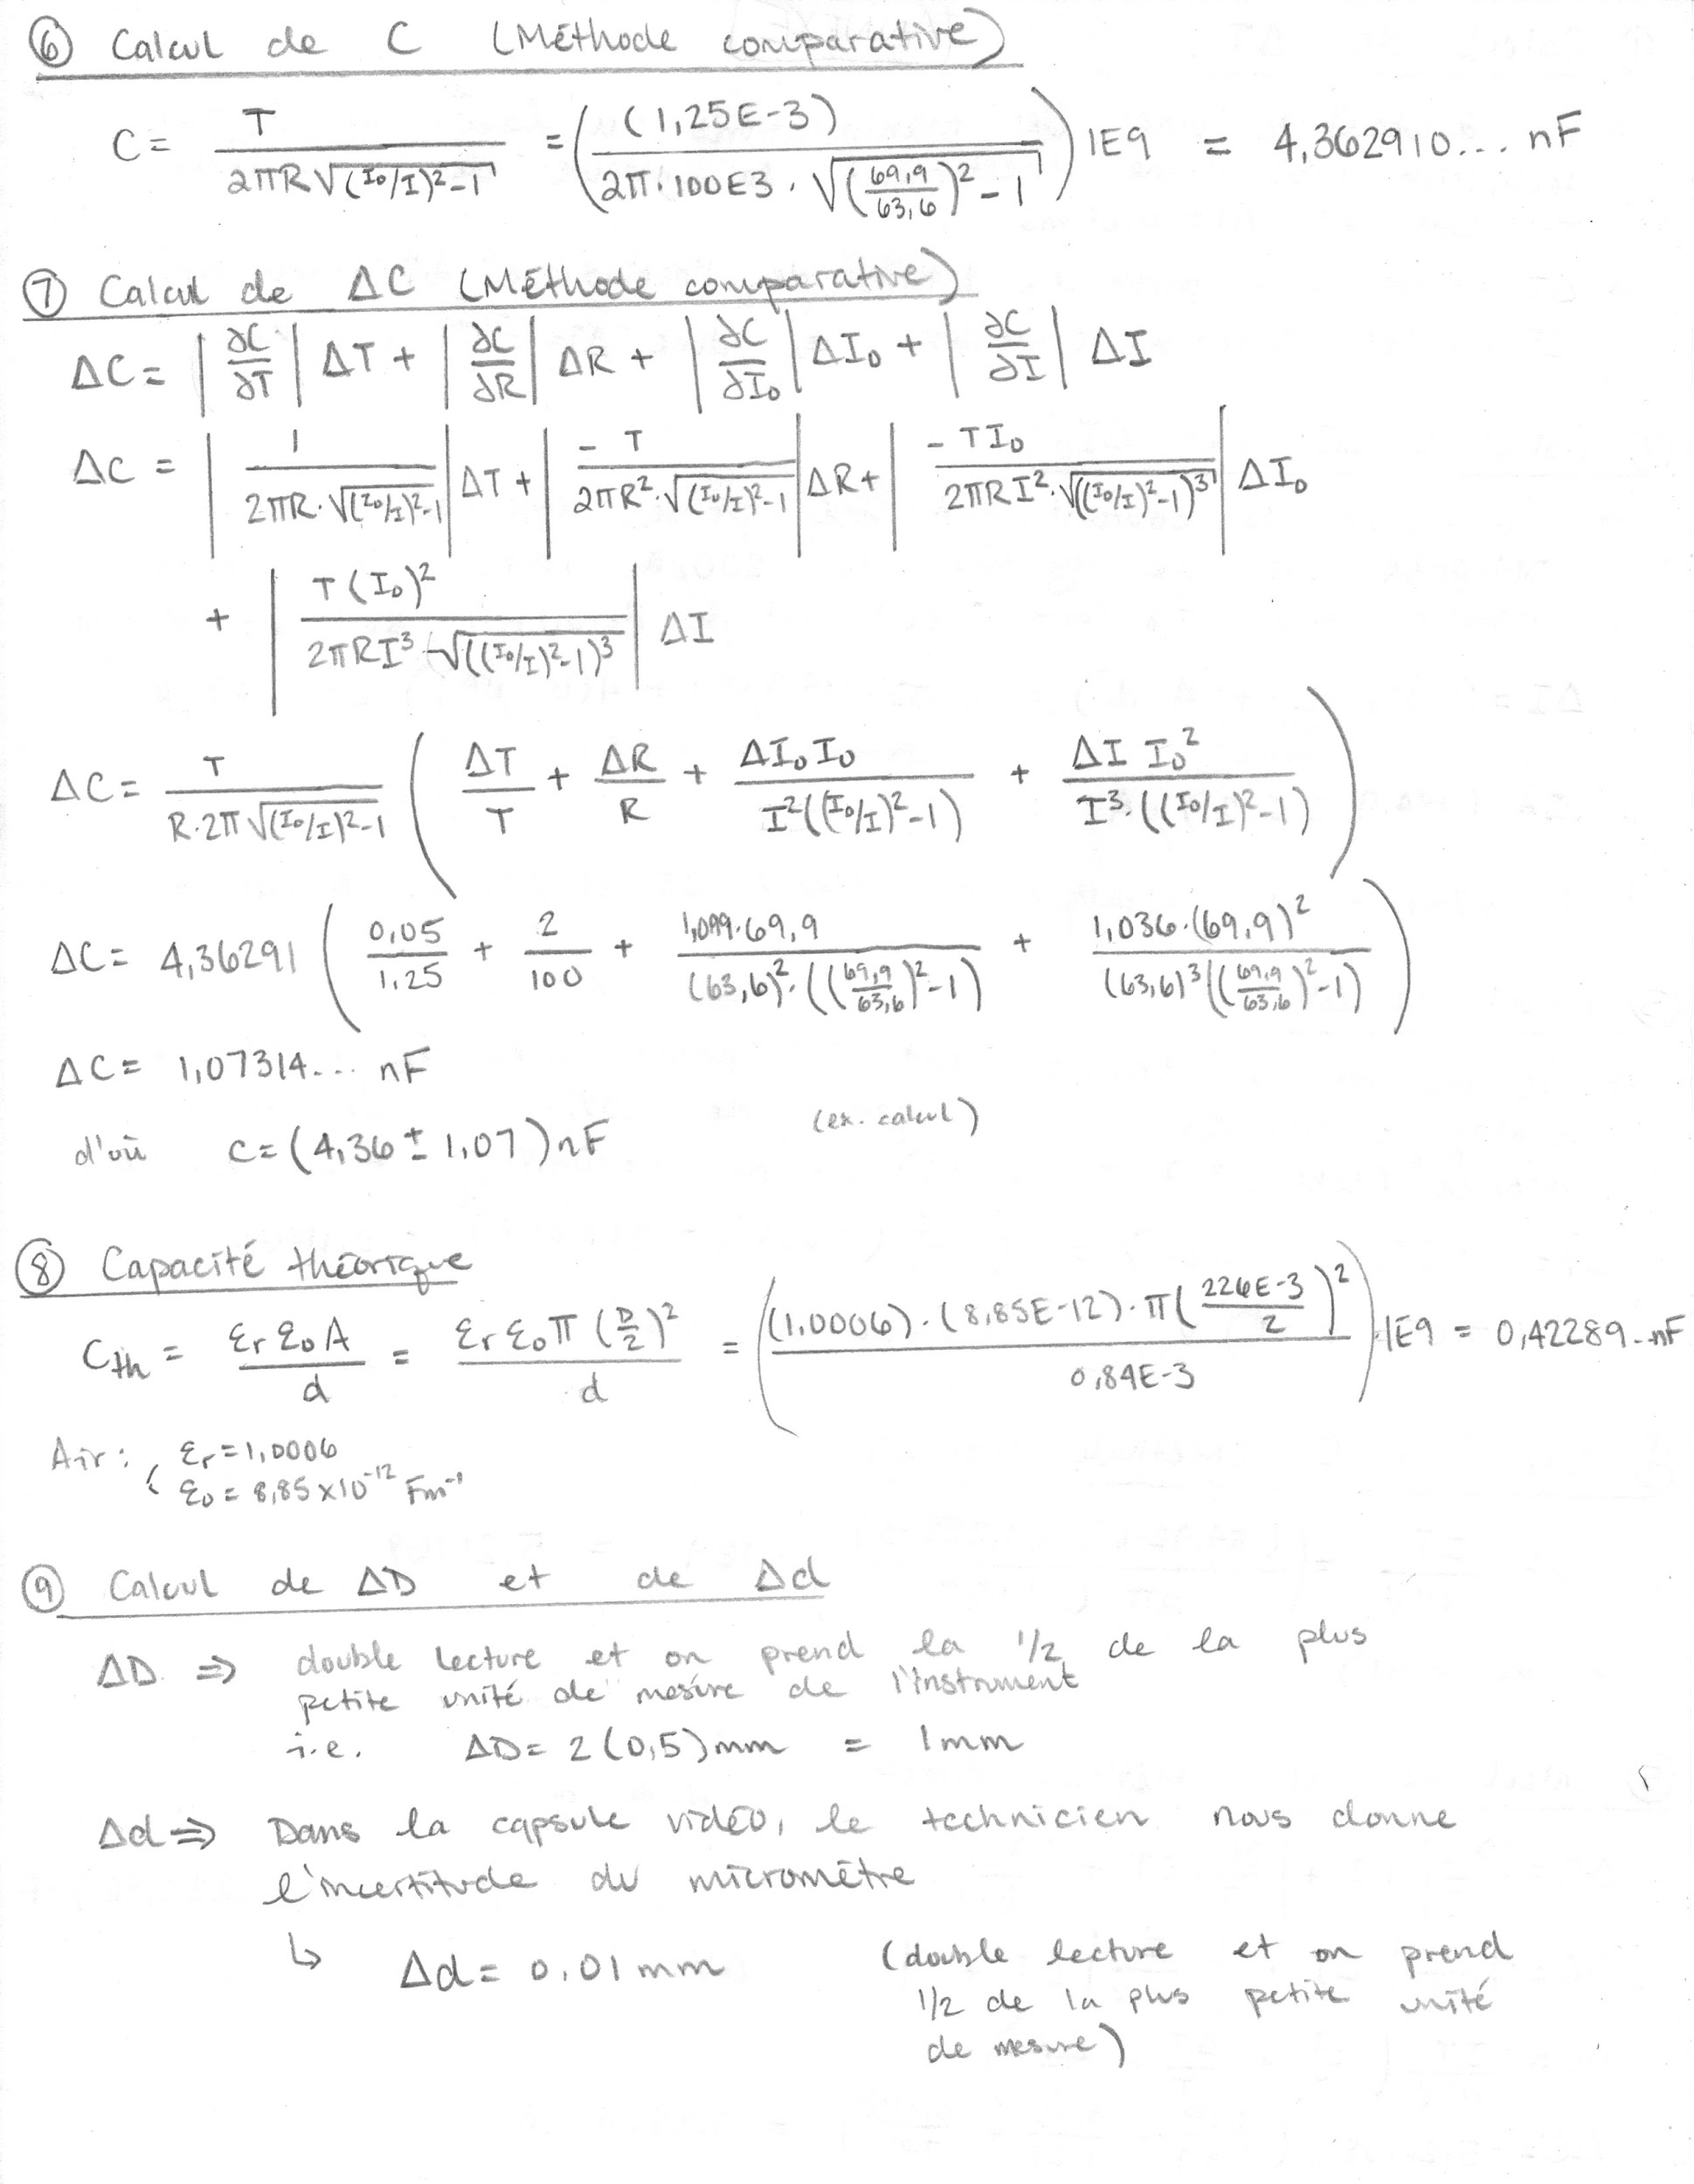 ⑥ Calcul de C (Méthode comparative)
C = T / (2πR√((I₀/I)²-1)) = ((1,25E-3) / (2π·100E3·√((69,9/63,6)²-1))) 1E9 = 4,362910... nF
⑦ Calcul de ΔC (Méthode comparative)
ΔC = |∂C/∂T| ΔT + |∂C/∂R| ΔR + |∂C/∂I₀| ΔI₀ + |∂C/∂I| ΔI
ΔC = |1 / (2πR·√((I₀/I)²-1)| ΔT + |-T / (2πR²·√((I₀/I)²-1)| ΔR + |-TI₀ / (2πRI²·√(((I₀/I)²-1)³)| ΔI₀
+ |T(I₀)² / (2πRI³·√(((I₀/I)²-1)³)| ΔI
ΔC = T / (R·2π√((I₀/I)²-1)) (ΔT/T + ΔR/R + ΔI₀I₀ / (I²((I₀/I)²-1)) + ΔI I₀² / (I³·((I₀/I)²-1)))
ΔC = 4,36291 (0,05/1,25 + 2/100 + 1,099·69,9 / ((63,6)²·((69,9/63,6)²-1)) + 1,036·(69,9)² / ((63,6)³((69,9/63,6)²-1)))
ΔC = 1,07314... nF
(ex. calcul)
d'où C = (4,36 ± 1,07) nF
⑧ Capacité théorique
Cth = εrε₀A / d = εrε₀π(D/2)² / d = ((1,0006)·(8,85E-12)·π(226E-3/2)² / 0,84E-3)·1E9 = 0,42289.. nF
Air : { εr = 1,0006
ε₀ = 8,85×10⁻¹² Fm⁻¹
⑨ Calcul de ΔD et de Δd
ΔD ⇒ double lecture et on prend la 1/2 de la plus
petite unité de mesure de l'instrument
i.e. ΔD = 2(0,5)mm = 1mm
Δd ⇒ Dans la capsule vidéo, le technicien nous donne
l'incertitude du micromètre
↳ Δd = 0,01mm (double lecture et on prend
1/2 de la plus petite unité
de mesure)